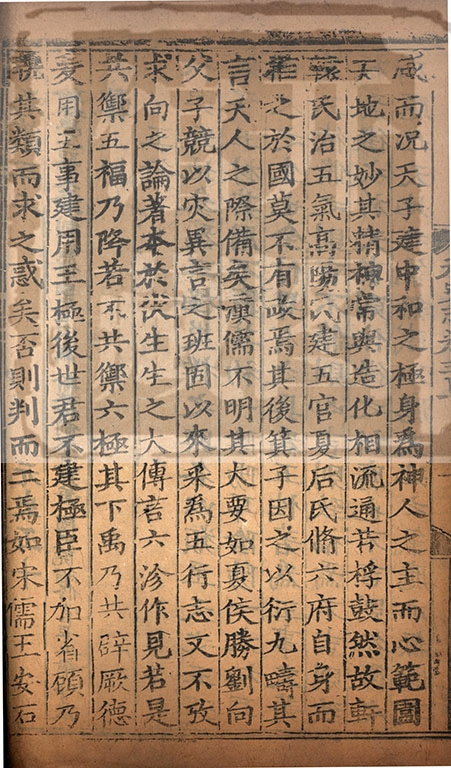 感而况天子建中和之極身爲神人之主而心範圍
天地之妙其精神常與造化相流通若桴鼓然故軒
轅氏治五氣高陽氏建五官夏后氏脩六府自身而
推之於國莫不有政焉其後箕子因之以衍九疇其
言天人之際備矣漢儒不明其大要如夏侯勝劉向
父子競以灾異言之班固以來采爲五行志又不攷
求向之論著本於伏生生之大傳言六沴作見若是
共禦五福乃降若不共禦六極其下禹乃共辟厥德
爰用五事建用王極後世君不建極臣不加省顧乃
執其類而求之惑矣否則判而二焉如宋儒王安石